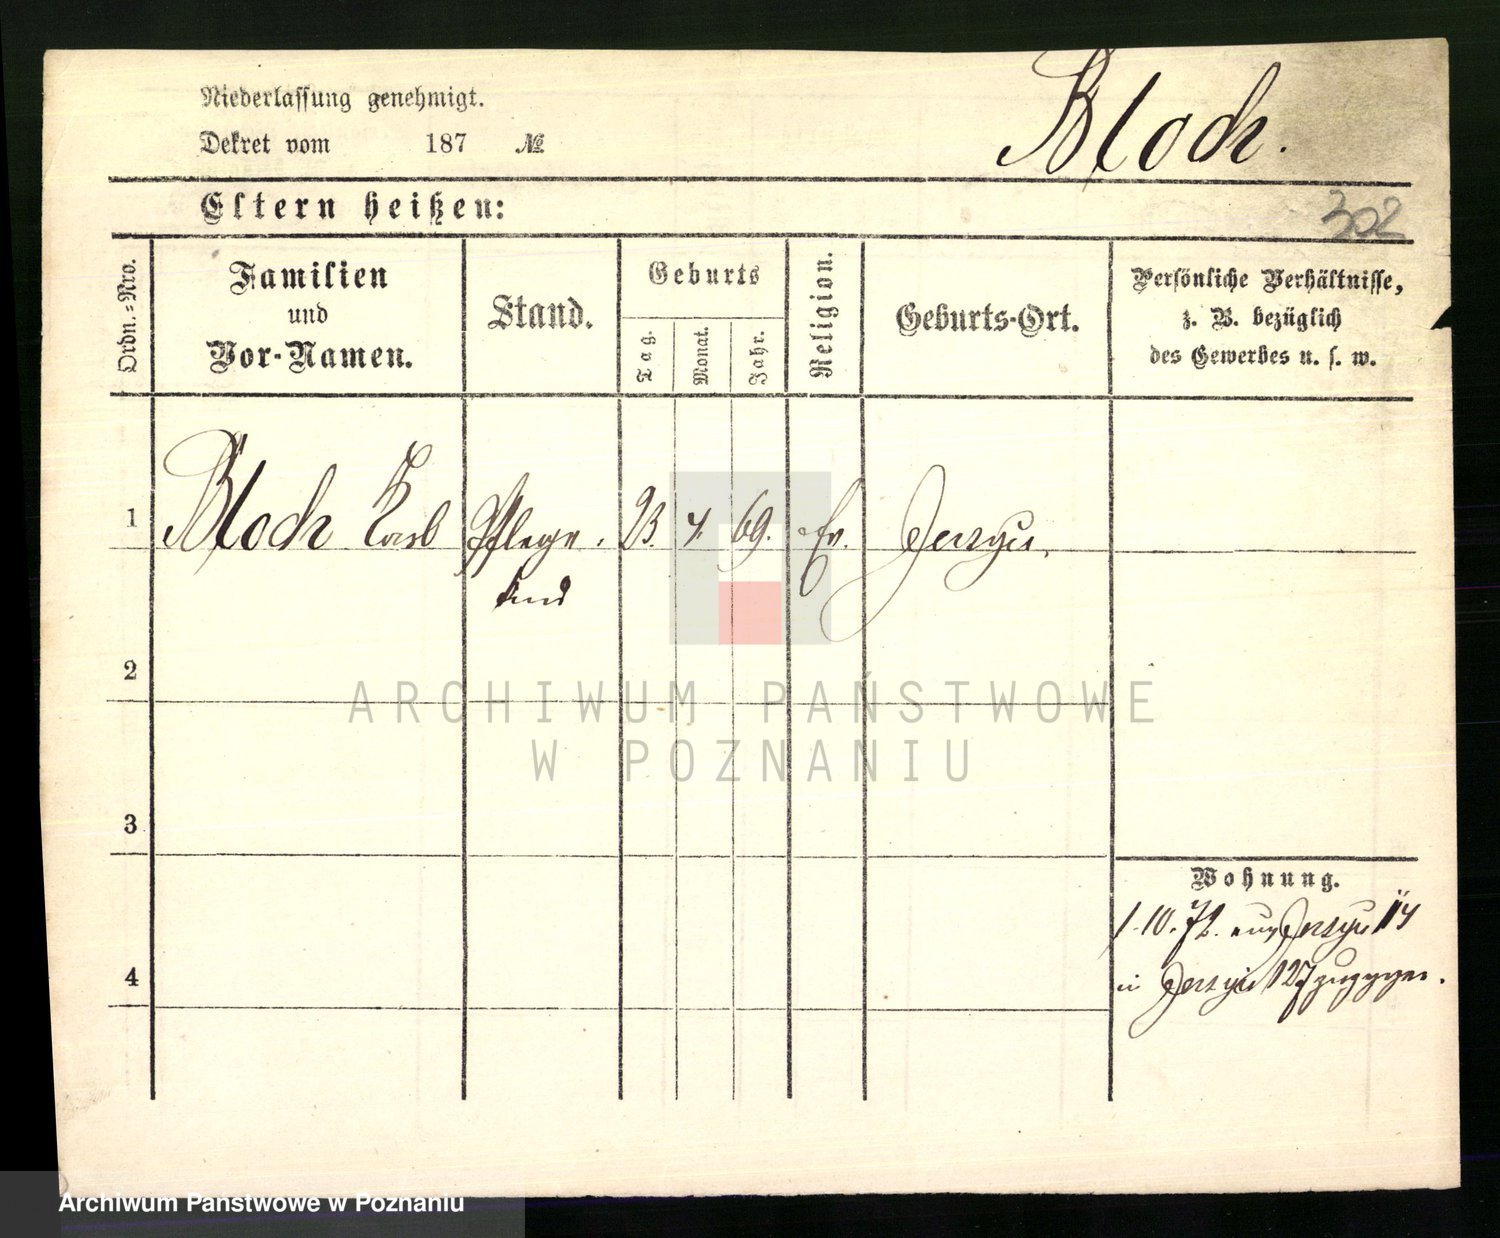 Bloch.
Niederlassung genehmigt.
Dekret vom 187 №
Eltern heißen:
302
Ordn.-Nro.
Familien
und
Vor-Namen.
Stand.
Geburts
Tag.
Monat.
Jahr.
Religion.
Geburts-Ort.
Persönliche Verhältnisse,
z. B. bezüglich
des Gewerbes u. s. w.
1 Bloch Karl Pflege 23. 4. 69. Ev. Jerzyce.
kind
2
3
4
Wohnung.
1.10.72. aus Jerzyce 114
in Jerzyce 127 zugezogen.
ARCHIWUM PAŃSTWOWE
W POZNANIU
Archiwum Państwowe w Poznaniu